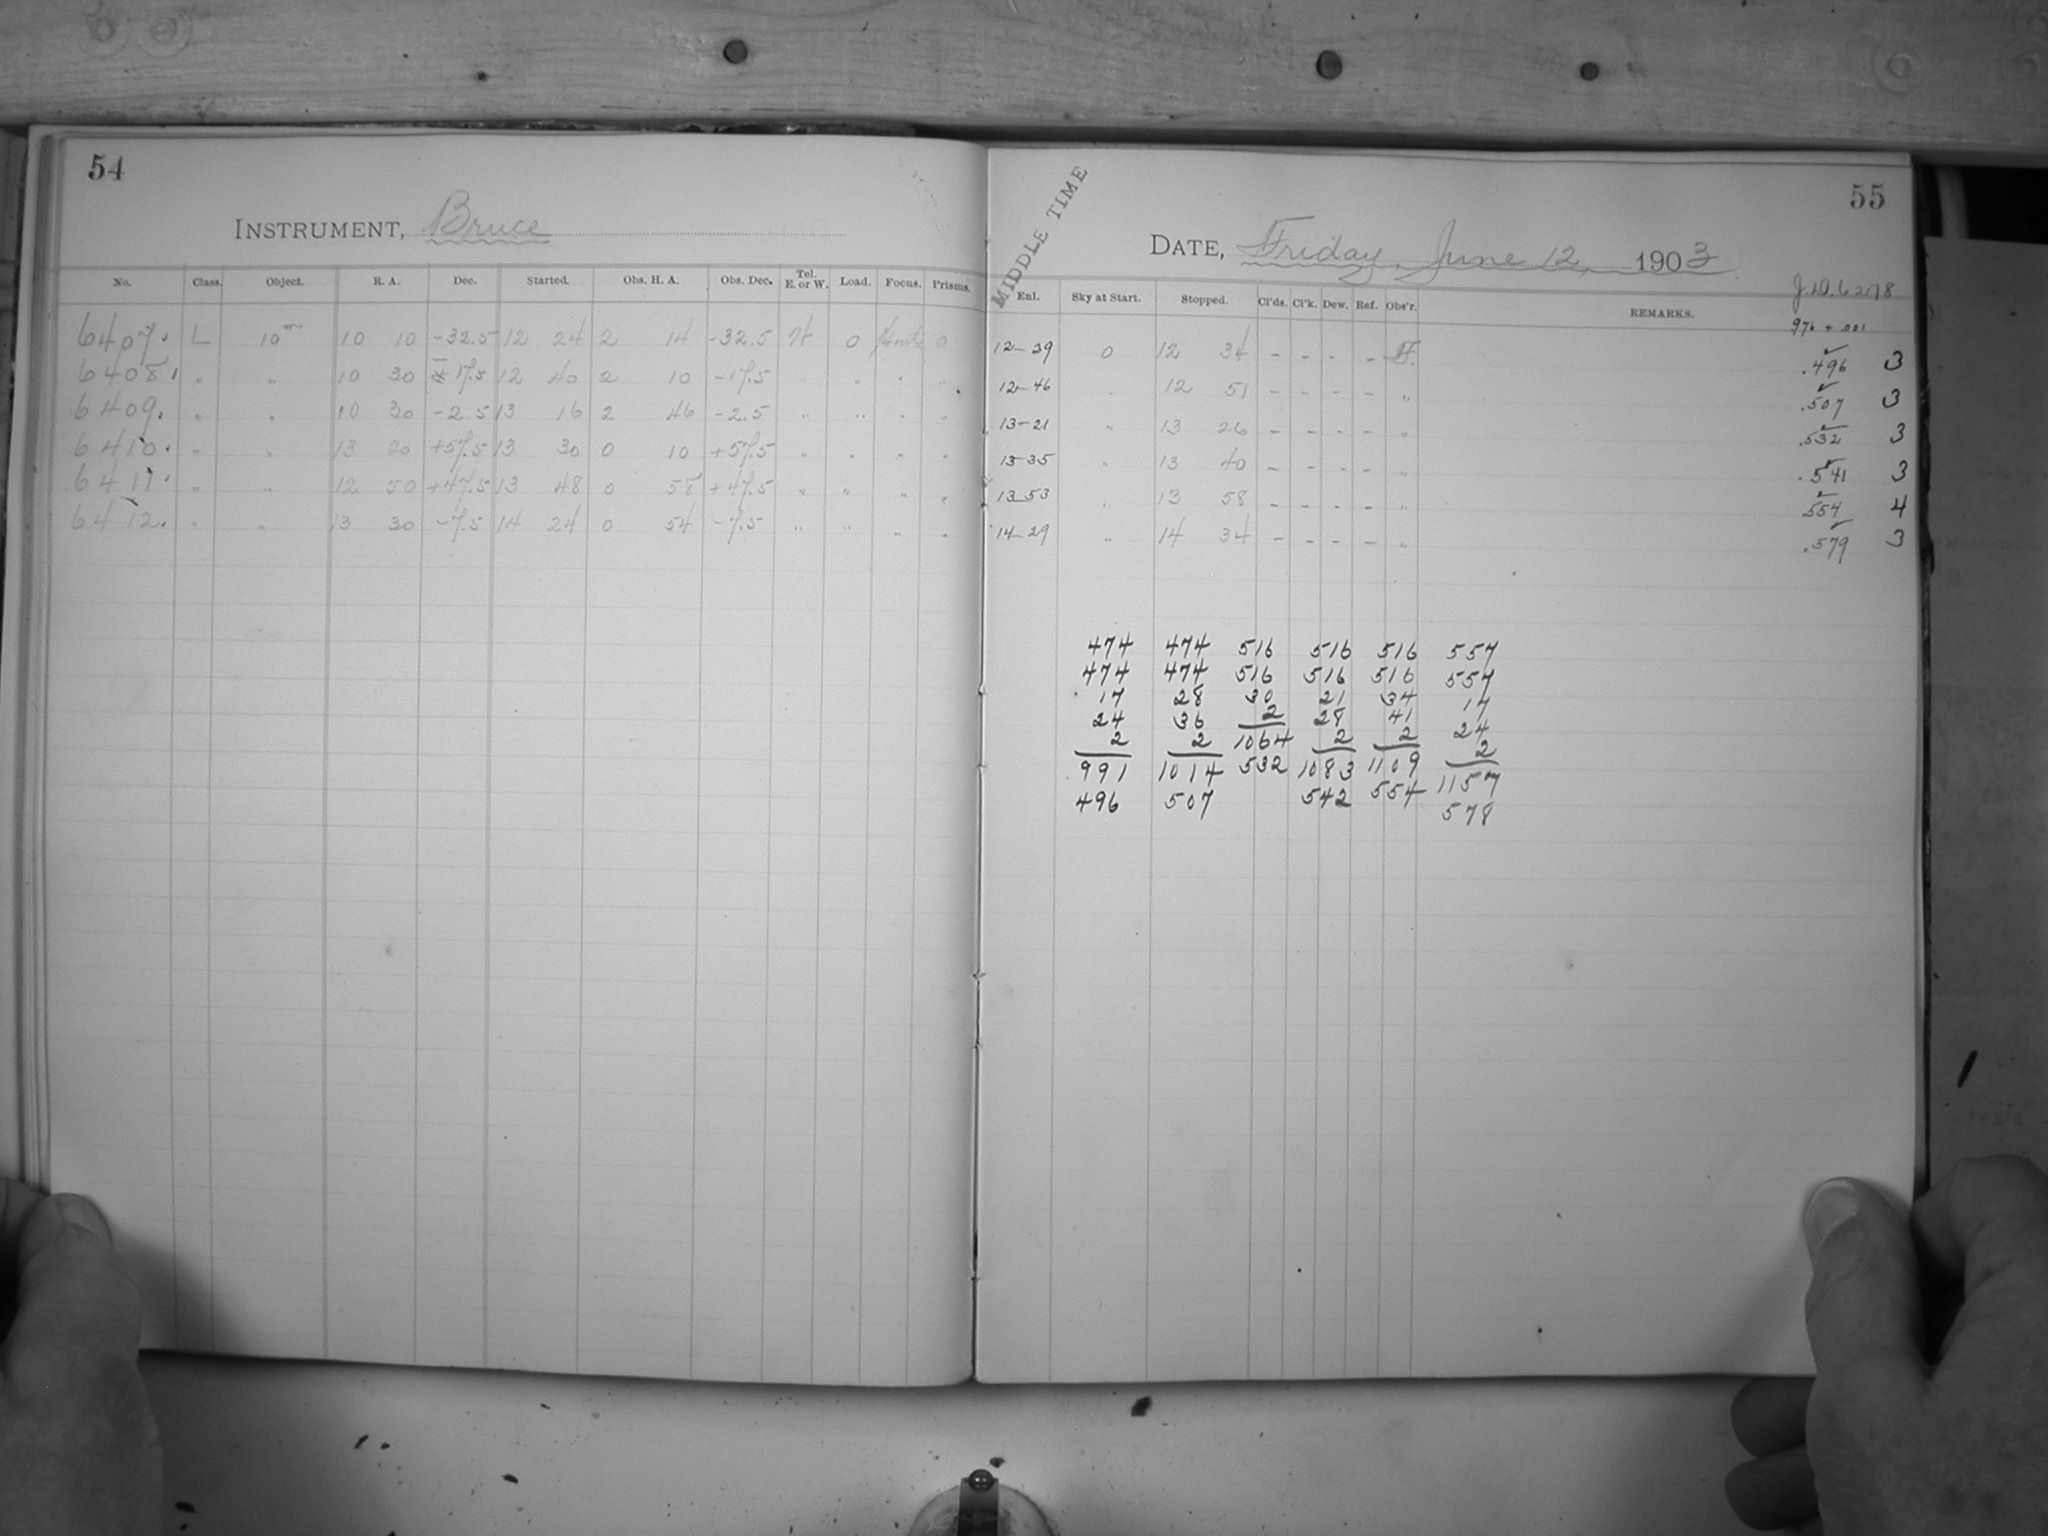 54
INSTRUMENT, Bruce
No. Class. Object. R. A. Dec. Started. Obs. H. A. Obs. Dec. Tel. E. or W. Load. Focus. Prisms.
6407. L 10m 10 10 -32.5 12 24 2 14 -32.5 W 0 0
6408. " " 10 30 -17.5 12 40 2 10 -17.5 " " " "
6409. " " 10 30 -2.5 13 16 2 46 -2.5 " " " "
6410. " " 13 20 +57.5 13 30 0 10 +57.5 " " " "
6411. " " 12 50 +47.5 13 48 0 58 +47.5 " " " "
6412. " " 13 30 -7.5 14 24 0 54 -7.5 " " " "
55
MIDDLE TIME
DATE, Friday, June 12, 1903
J.D. 6278
Enl. Sky at Start. Stopped. Cl'ds. Cl'k. Dew. Ref. Obs'r. REMARKS.
976 + .001
12-39 0 12 34 - - - - .496 3
12-46 " 12 51 - - - - " .507 3
13-21 " 13 26 - - - - " .532 3
13-35 " 13 40 - - - - " .541 3
13-53 " 13 58 - - - - " 554 4
14-29 " 14 34 - - - - " .579 3
474 474 516 516 516 557
474 474 516 516 516 557
17 28 30 21 34 17
24 36 2 28 41 24
2 2 1064 2 2 2
991 1014 532 1083 1109 1157
496 507 542 554 578